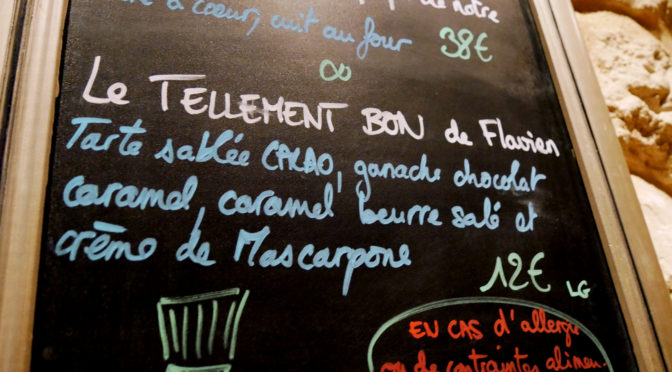 à coeur, cuit au four 38€
de notre
∞
Le TELLEMENT BON de Flavien
Tarte sablée CACAO, ganache chocolat
caramel, caramel beurre salé et
crème de Mascarpone
12€ LG
EN CAS d'allergie
ou de contraintes alimen-